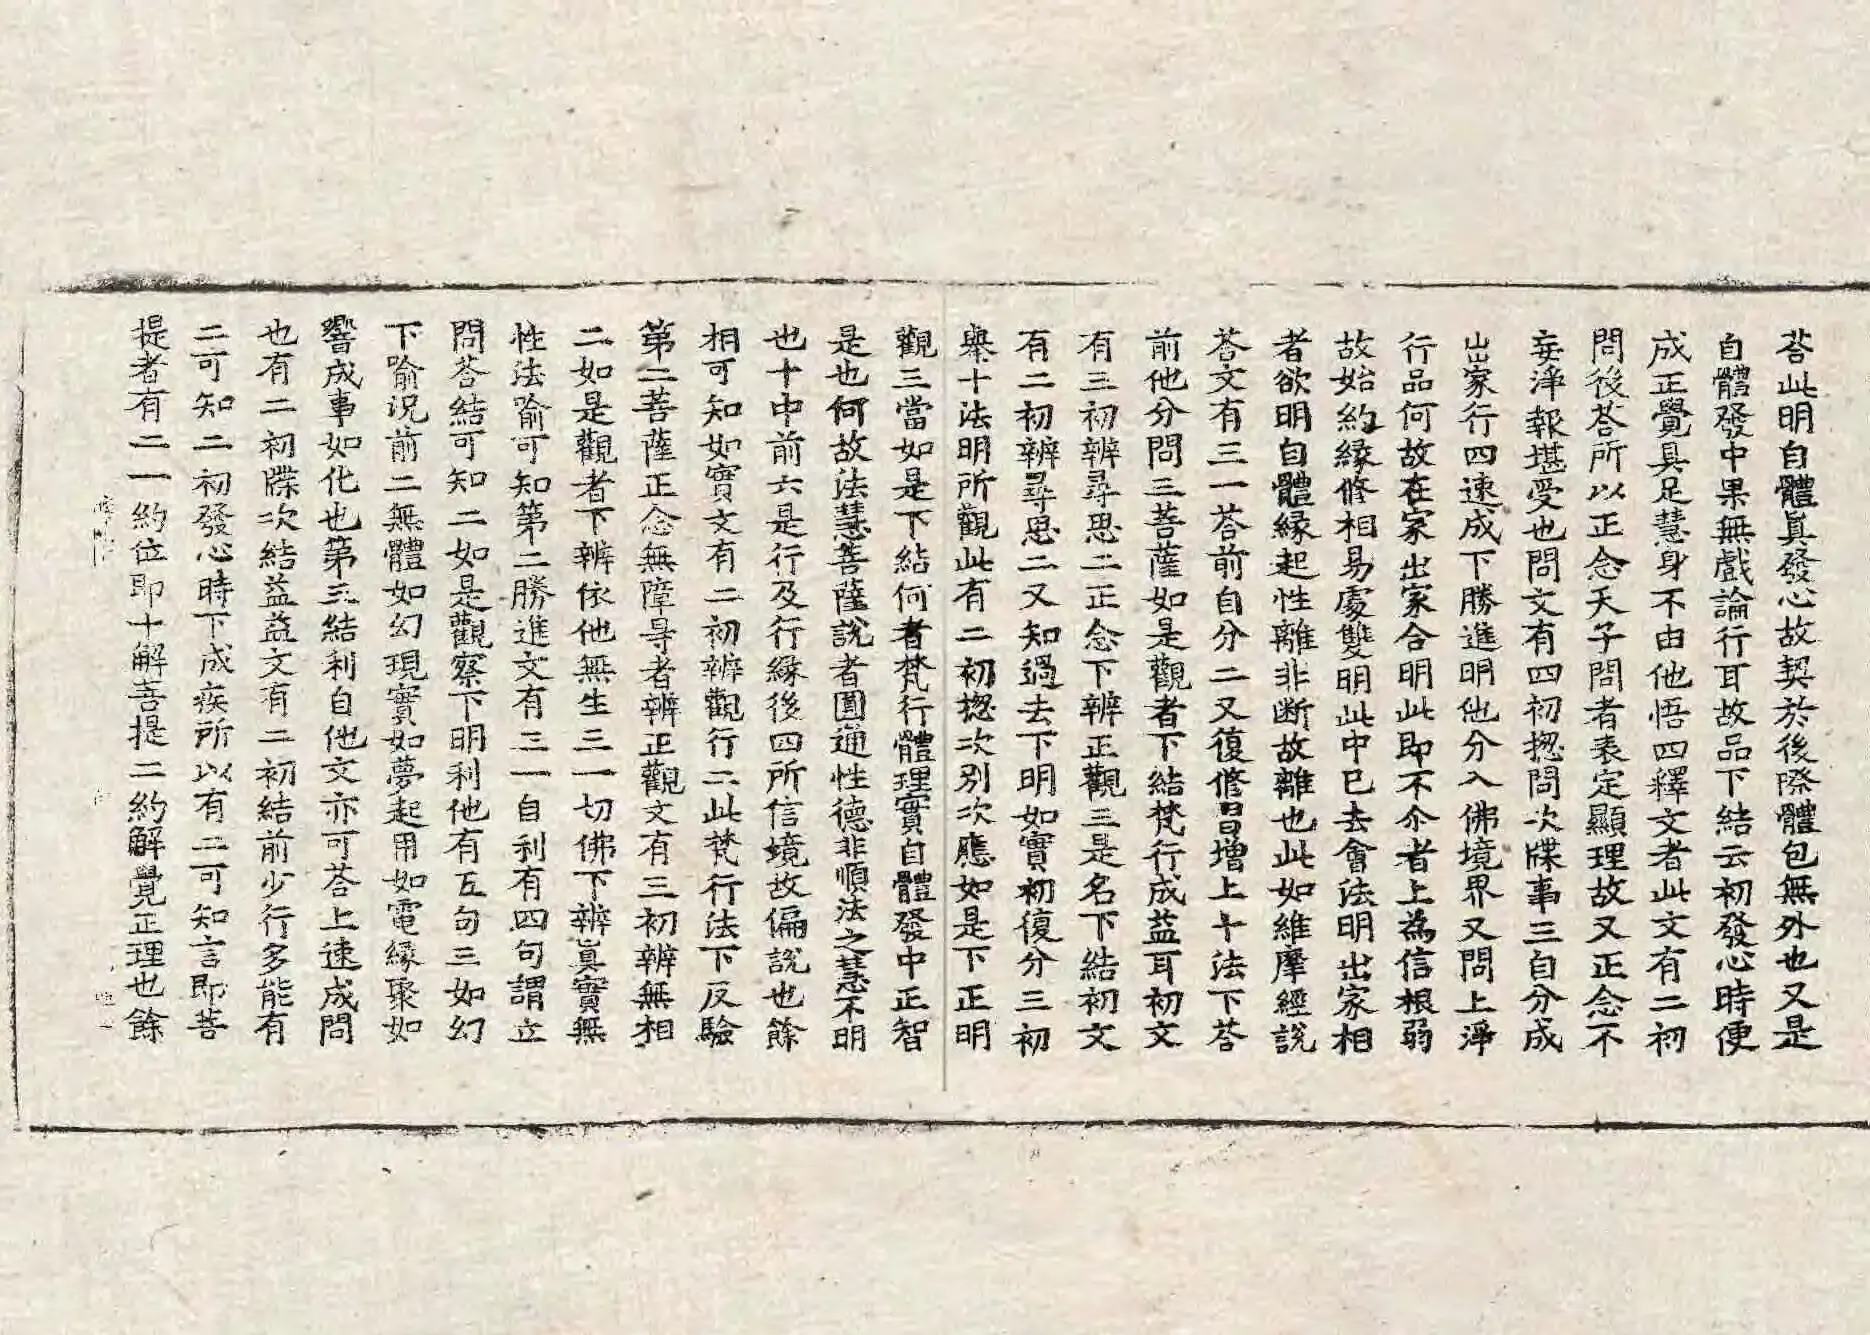 荅此明自體真發心故契於後際體包無外也又是
自體發中果無戲論行耳故品下結云初發心時便
成正覺具足慧身不由他悟四釋文者此文有二初
問後荅所以正念天子問者表定顯理故又正念不
妄淨報堪受也問文有四初揔問次牒事三自分成
出家行四速成下勝進明他分入佛境界又問上淨
行品何故在家出家合明此即不介者上為信根弱
故始約緣修相易處雙明此中已去會法明出家相
者欲明自體緣起性離非断故離也此如維摩經說
荅文有三一荅前自分二又復修曰增上十法下荅
前他分問三菩薩如是觀者下結梵行成益耳初文
有三初辨尋思二正念下辨正觀三是名下結初文
有二初辨尋思二又知過去下明如實初復分三初
舉十法明所觀此有二初揔次別次應如是下正明
觀三當如是下結何者梵行體理實自體發中正智
是也何故法慧菩薩說者圓通性德非順法之慧不明
也十中前六是行及行緣後四所信境故偏說也餘
相可知如實文有二初辨觀行二此梵行法下反驗
第二菩薩正念無障㝵者辨正觀文有三初辨無相
二如是觀者下辨依他無生三一切佛下辨真實無
性法喻可知第二勝進文有三一自利有四句謂立
問荅結可知二如是觀察下明利他有五句三如幻
下喻況前二無體如幻現實如夢起用如電緣聚如
響成事如化也第三結利自他文亦可荅上速成問
也有二初牒次結益益文有二初結前少行多能有
二可知二初發心時下成疾所以有二可知言即菩
提者有二一約位即十解菩提二約解覺正理也餘